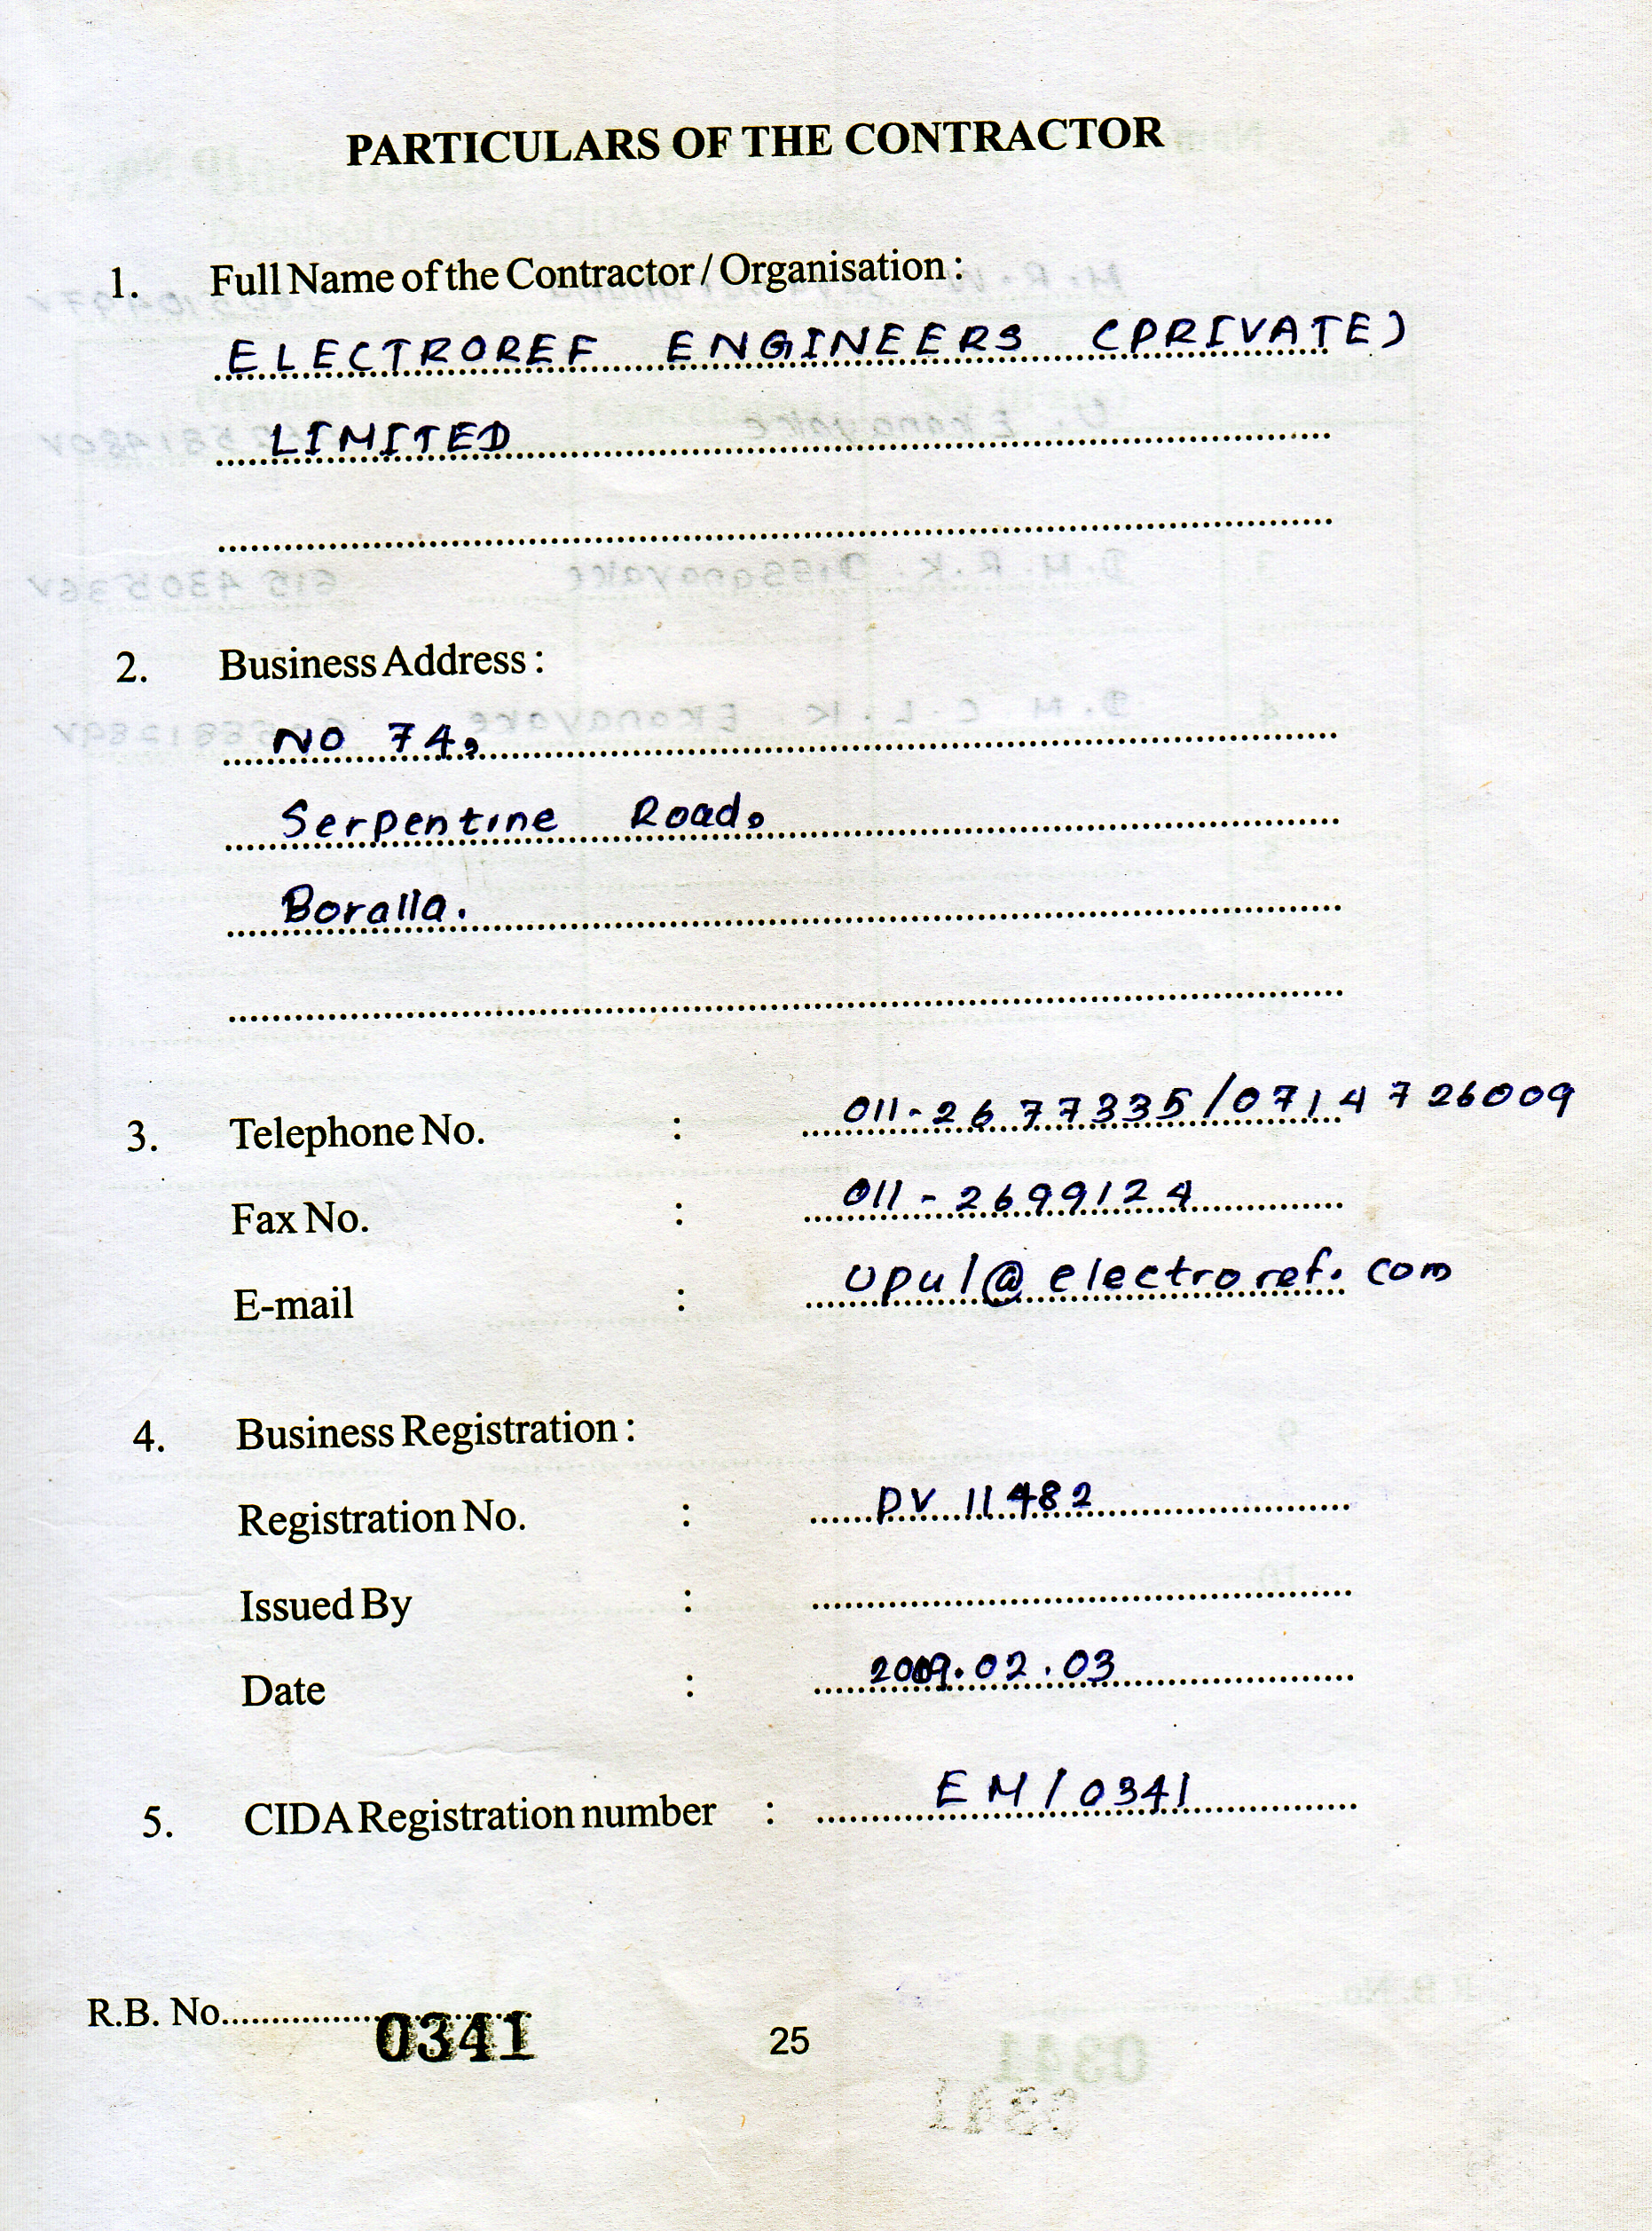 PARTICULARS OF THE CONTRACTOR
1. Full Name of the Contractor / Organisation :
ELECTROREF ENGINEERS (PRIVATE)
LIMITED
2. Business Address :
NO 74,
Serpentine Road,
Boralla.
3. Telephone No. : 011-2677335/0714726009
Fax No. : 011-2699124
E-mail : upul@electroref.com
4. Business Registration :
Registration No. : PV 11482
Issued By :
Date : 2009.02.03
5. CIDA Registration number : EM/0341
R.B. No. 0341
25